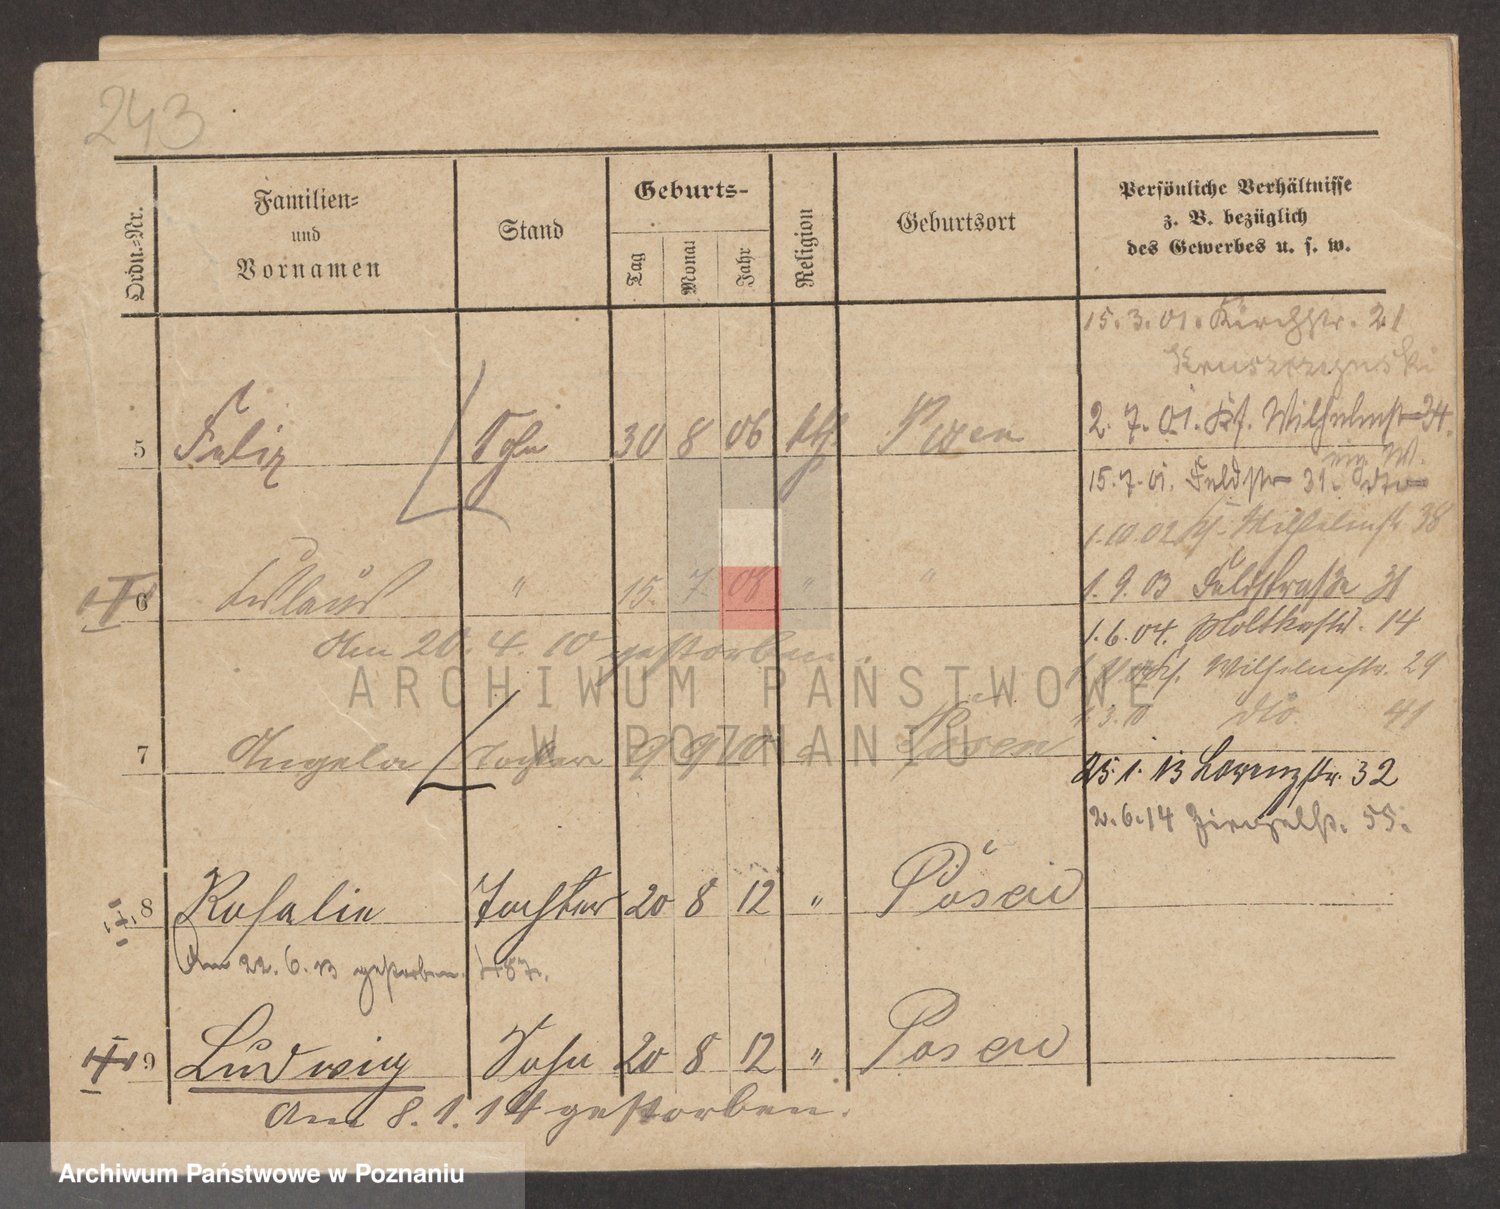 243
Ordn.-Nr.
Familien-
und
Vornamen
Stand
Geburts-
Tag
Monat
Jahr
Religion
Geburtsort
Persönliche Verhältnisse
z. B. bezüglich
des Gewerbes u. s. w.
15. 3. 01. Kirchstr. 21
5 Felix Sohn 30 8 06 kth Posen
2. 7. 01. Wilhelmstr 34.
15. 7. 01. Feldstr 31. dto
1. 10. 02 Wilhelmstr 38
6 " 15. 7. 08 " "
1. 9. 03 Feldstraße 31
Am 20. 4. 10 gestorben.
1. 6. 04. Moltkestr. 14
Wilhelmstr. 29
1. 3. 10 dto 41
7 Angela Tochter 9 9 10 " Posen
25. 1. 13 Lorenzstr. 32
2. 6. 14 55.
8 Rosalie Tochter 20 8 12 " Posen
Am 22. 6. 13 gestorben.
9 Ludwig Sohn 20 8 12 " Posen
Am 8. 1. 14 gestorben.
ARCHIWUM PAŃSTWOWE
W POZNANIU
Archiwum Państwowe w Poznaniu